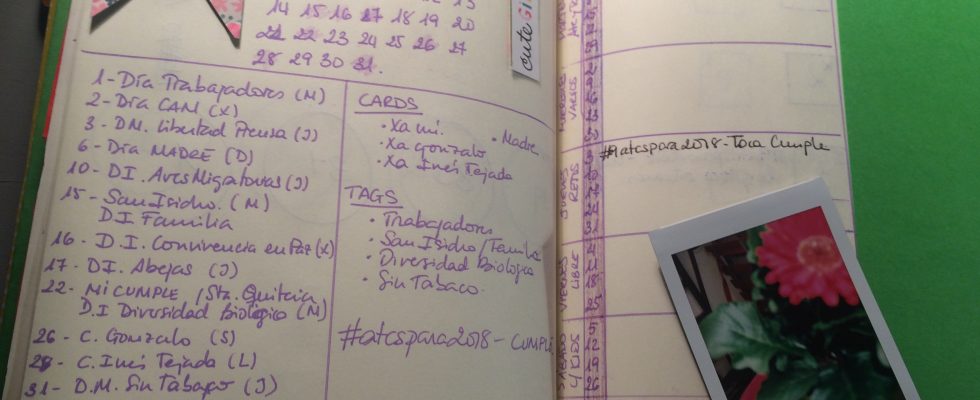 14 15 16 17 18 19 20
21 22 23 24 25 26 27
28 29 30 31.
cute Gi
1 - Día Trabajadores (M)
2 - Día CAM (X)
3 - DM. Libertad Prensa (J)
6 - Día MADRE (D)
10 - DI. Aves Migratorias (J)
15 - San Isidro. (M)
D.I. Familia
16 - D.I. Convivencia en Paz (X)
17 - DI. Abejas (J)
22 - MI CUMPLE / Sta. Quiteria
D.I Diversidad Biológico (M)
26 - C. Gonzalo (S)
28 - C. Inés Tejada (L)
31 - D.M. Sin Tabaco (J)
CARDS
• Xa mi.
• Madre
• Xa Gonzalo
• Xa Inés Tejada
TAGS
• Trabajadores
• San Isidro / Familia
• Diversidad Biológica
• Sin Tabaco.
#atcspara2018 - CUMPLE
VARIOS
2
9
16
23
30
#atcspara2018 - Toca Cumple
JUEVES
RETOS
3
10
17
24
31
VIERNES
LIBRE
4
11
18
25
SABADO
5
12
19
26